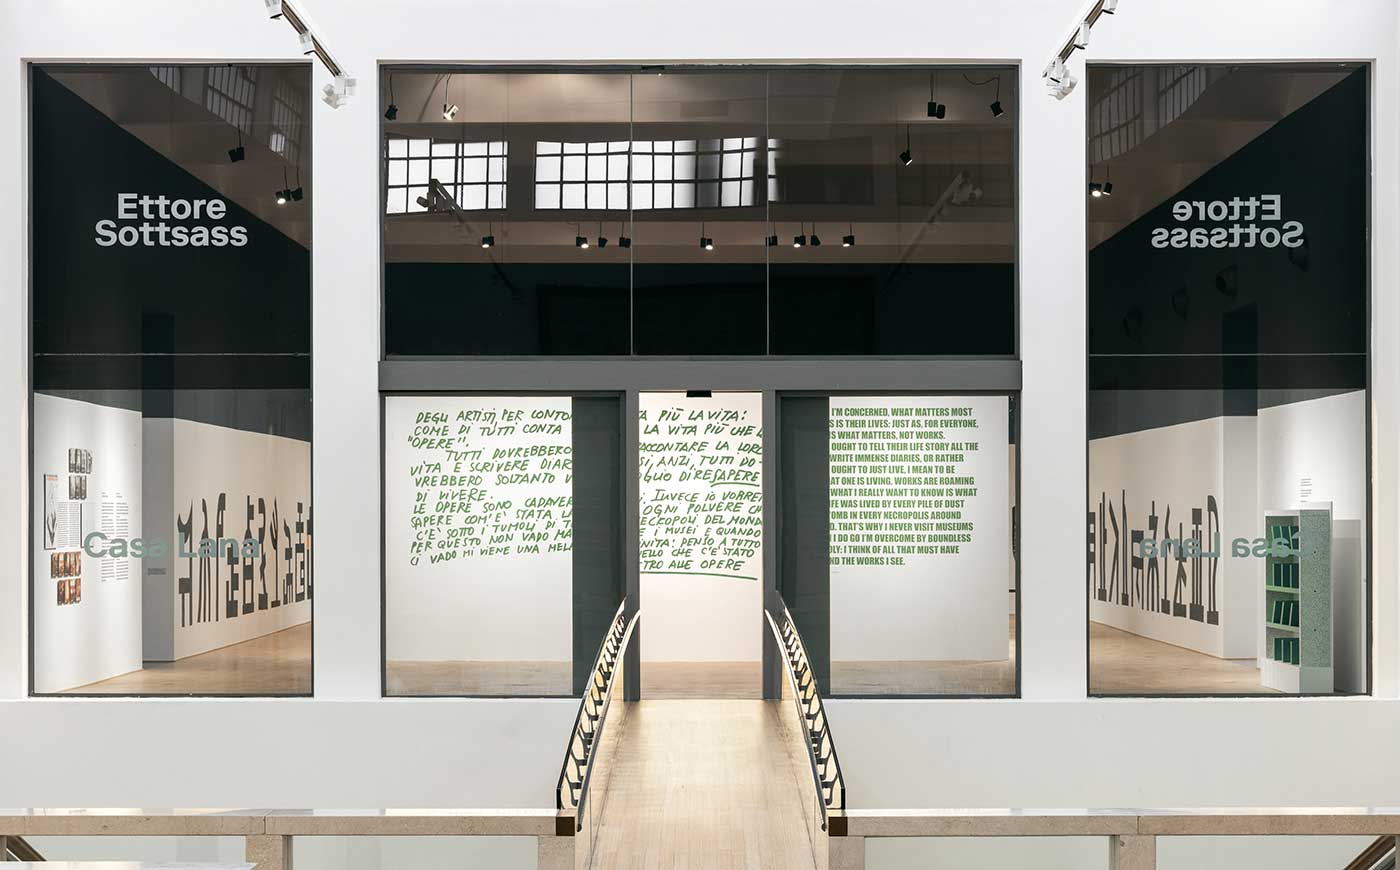 Ettore
Sottsass
Casa Lana
DEGLI ARTISTI, PER CONTO TA PIÙ LA VITA:
COME DI TUTTI CONTA LA VITA PIÙ CHE L
"OPERE".
TUTTI DOVREBBERO RACCONTARE LA LORO
VITA E SCRIVERE DIAR SI, ANZI, TUTTI DO-
VREBBERO SOLTANTO V OGLIO DIRE SAPERE
DI VIVERE.
LE OPERE SONO CADAVER I. INVECE IO VORREI
SAPERE COM'È STATA LA OGNI POLVERE CH
C'È SOTTO I TUMOLI DI T NECROPOLI DEL MONDO
PER QUESTO NON VADO MA E I MUSEI E QUANDO
CI VADO MI VIENE UNA MEL NITA: PENSO A TUTTO
ELLO CHE C'È STATO
TRO ALLE OPERE
I'M CONCERNED, WHAT MATTERS MOST
S IS THEIR LIVES: JUST AS, FOR EVERYONE,
IS WHAT MATTERS, NOT WORKS.
OUGHT TO TELL THEIR LIFE STORY ALL THE
WRITE IMMENSE DIARIES, OR RATHER
OUGHT TO JUST LIVE, I MEAN TO BE
AT ONE IS LIVING. WORKS ARE ROAMING
WHAT I REALLY WANT TO KNOW IS WHAT
IFE WAS LIVED BY EVERY PILE OF DUST
TOMB IN EVERY NECROPOLIS AROUND
D. THAT'S WHY I NEVER VISIT MUSEUMS
I DO GO I'M OVERCOME BY BOUNDLESS
OLY: I THINK OF ALL THAT MUST HAVE
ND THE WORKS I SEE.
Ettore
Sottsass
Casa Lana